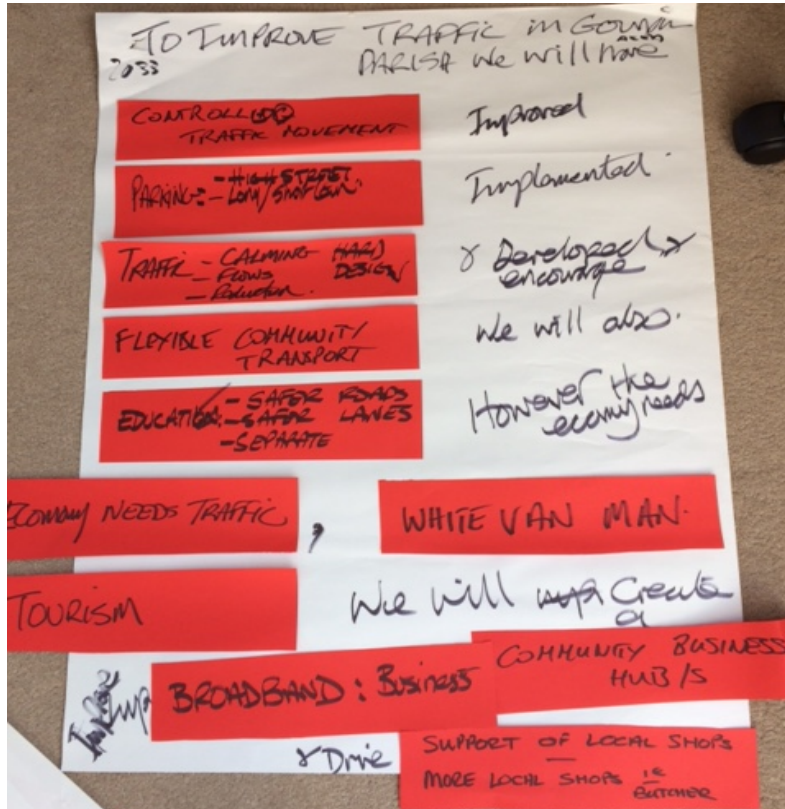 TO IMPROVE TRAFFIC in
2033 PARISH we will have
CONTROLLED
TRAFFIC MOVEMENT
Improved
PARKING:- HIGH STREET
- Long/Short
Implamented.
TRAFFIC - CALMING HARD
- FLOWS DESIGN
- Reduction.
& Developed &
encourage
FLEXIBLE COMMUNITY
TRANSPORT
we will also.
EDUCATION - SAFER ROADS
- SAFER LANES
- SEPARATE
However the
ecomy needs
Economy NEEDS TRAFFIC
,
WHITE VAN MAN.
TOURISM
We will Create
a
COMMUNITY BUSINESS
HUB/S
Improve
Imp
BROADBAND: Business
& Drive
SUPPORT OF LOCAL SHOPS
—
MORE LOCAL SHOPS ie
BUTCHER